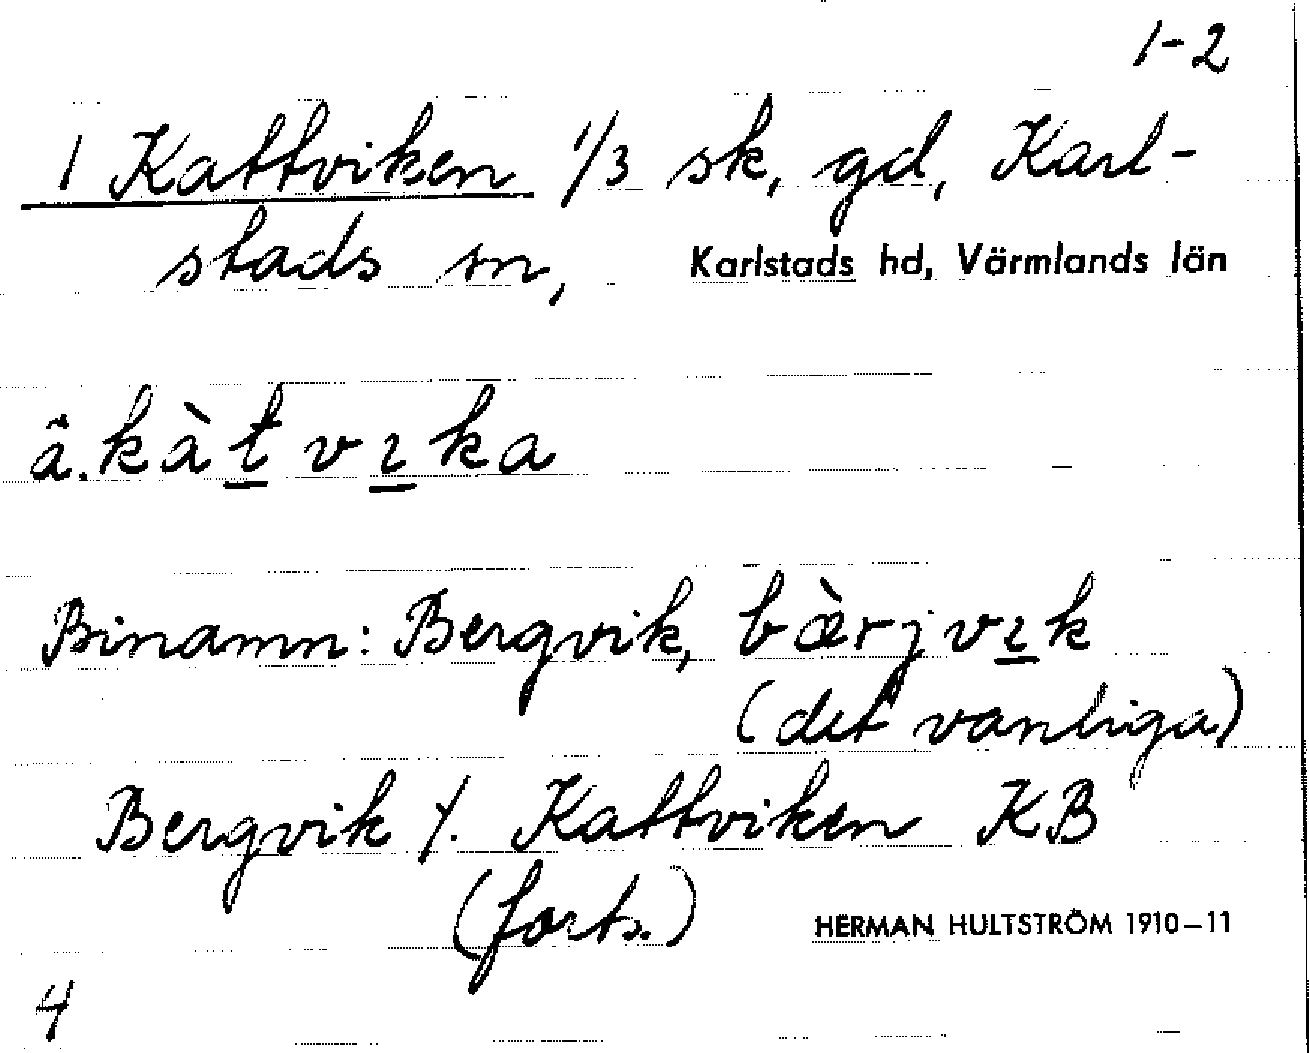 1-2
1 Kattviken 1/3 sk, gd, Karl-
stads sn, Karlstads hd, Värmlands län
â. kàt vɩka
Binamn: Bergvik, bàrjvɩk
(det vanliga)
Bergvik /. Kattviken KB
(forts.)
HERMAN HULTSTRÖM 1910–11
4